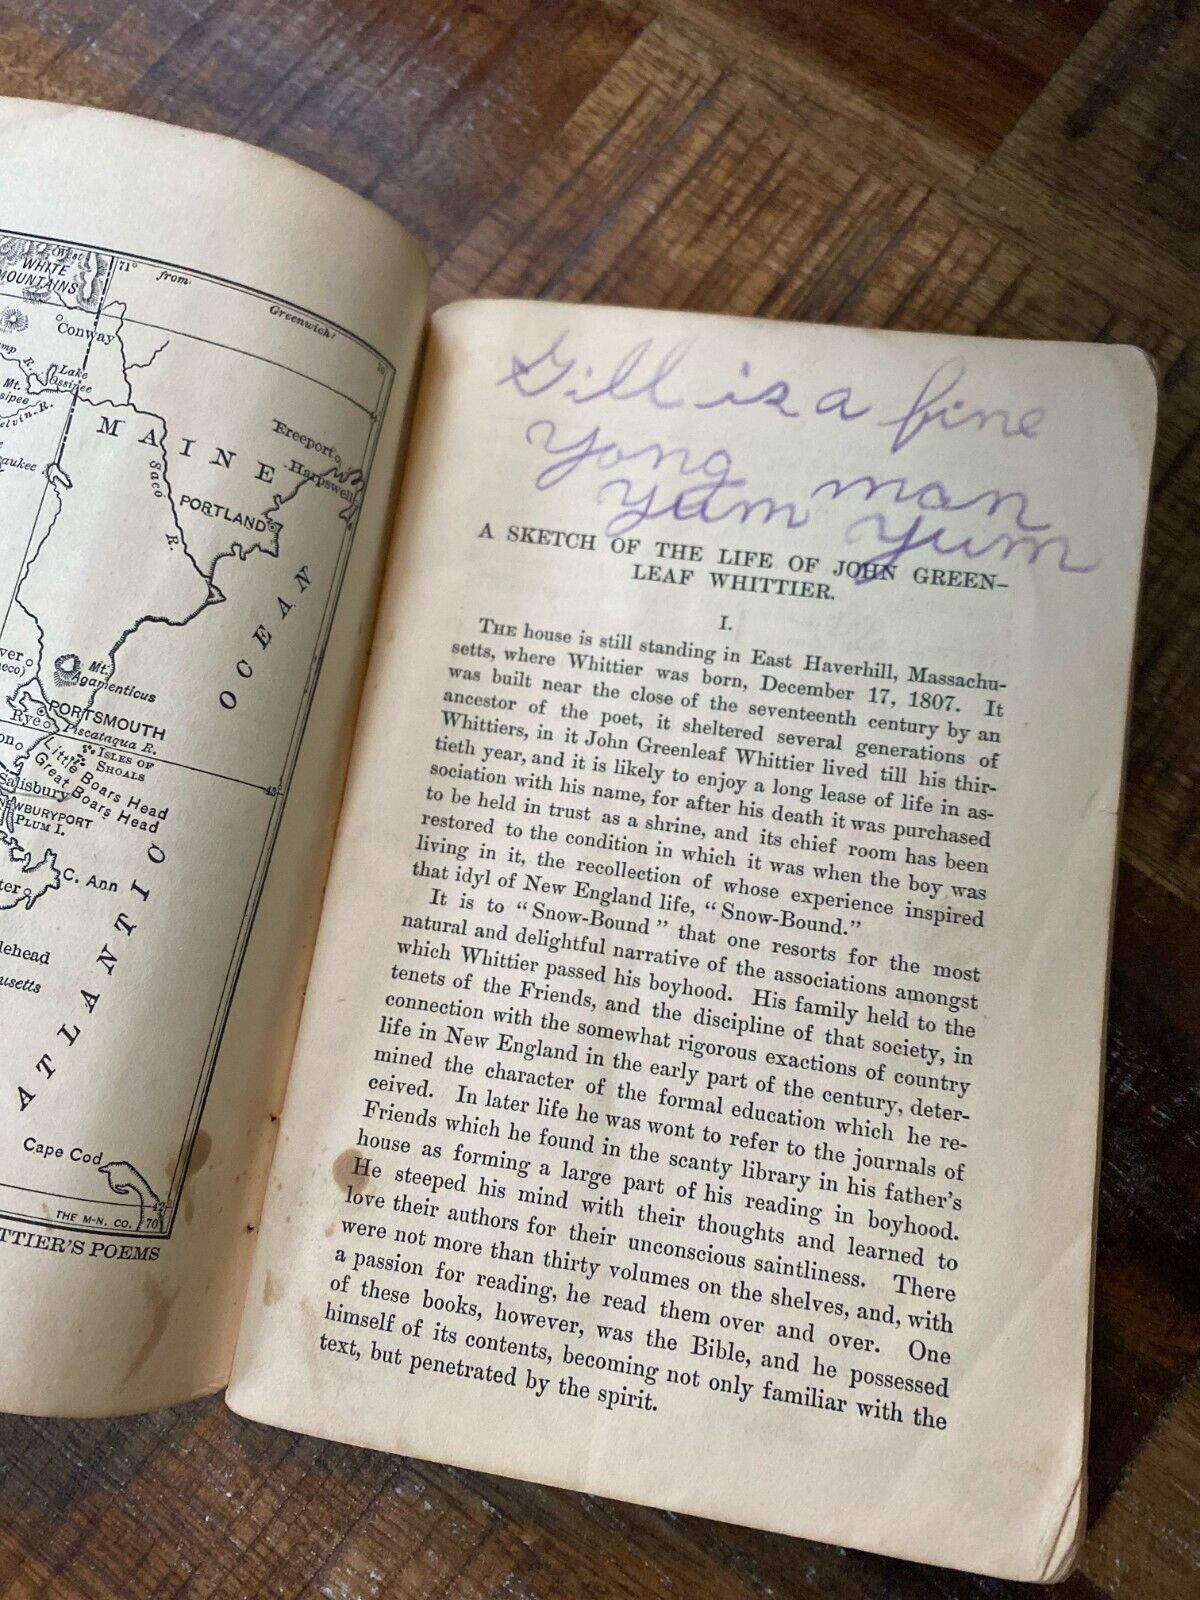 West
WHITE
MOUNTAINS
71° from Greenwich
Conway
Lake
Ossipee
Mt.
M A I N E
Saco R.
Freeport
Harpswell
PORTLAND
OCEAN
Mt.
Agamenticus
PORTSMOUTH
Rye
Piscataqua R.
ISLES OF
SHOALS
Little Boars Head
Great Boars Head
Salisbury
NEWBURYPORT
PLUM I.
C. Ann
ATLANTIC
Cape Cod
THE M-N. CO.
70
42
43
TTIER'S POEMS
Gill is a fine
Yong man
Yum Yum
A SKETCH OF THE LIFE OF JOHN GREEN-
LEAF WHITTIER.
I.
THE house is still standing in East Haverhill, Massachu-
setts, where Whittier was born, December 17, 1807. It
was built near the close of the seventeenth century by an
ancestor of the poet, it sheltered several generations of
Whittiers, in it John Greenleaf Whittier lived till his thir-
tieth year, and it is likely to enjoy a long lease of life in as-
sociation with his name, for after his death it was purchased
to be held in trust as a shrine, and its chief room has been
restored to the condition in which it was when the boy was
living in it, the recollection of whose experience inspired
that idyl of New England life, "Snow-Bound."
It is to "Snow-Bound" that one resorts for the most
natural and delightful narrative of the associations amongst
which Whittier passed his boyhood. His family held to the
tenets of the Friends, and the discipline of that society, in
connection with the somewhat rigorous exactions of country
life in New England in the early part of the century, deter-
mined the character of the formal education which he re-
ceived. In later life he was wont to refer to the journals of
Friends which he found in the scanty library in his father's
house as forming a large part of his reading in boyhood.
He steeped his mind with their thoughts and learned to
love their authors for their unconscious saintliness. There
were not more than thirty volumes on the shelves, and, with
a passion for reading, he read them over and over. One
of these books, however, was the Bible, and he possessed
himself of its contents, becoming not only familiar with the
text, but penetrated by the spirit.